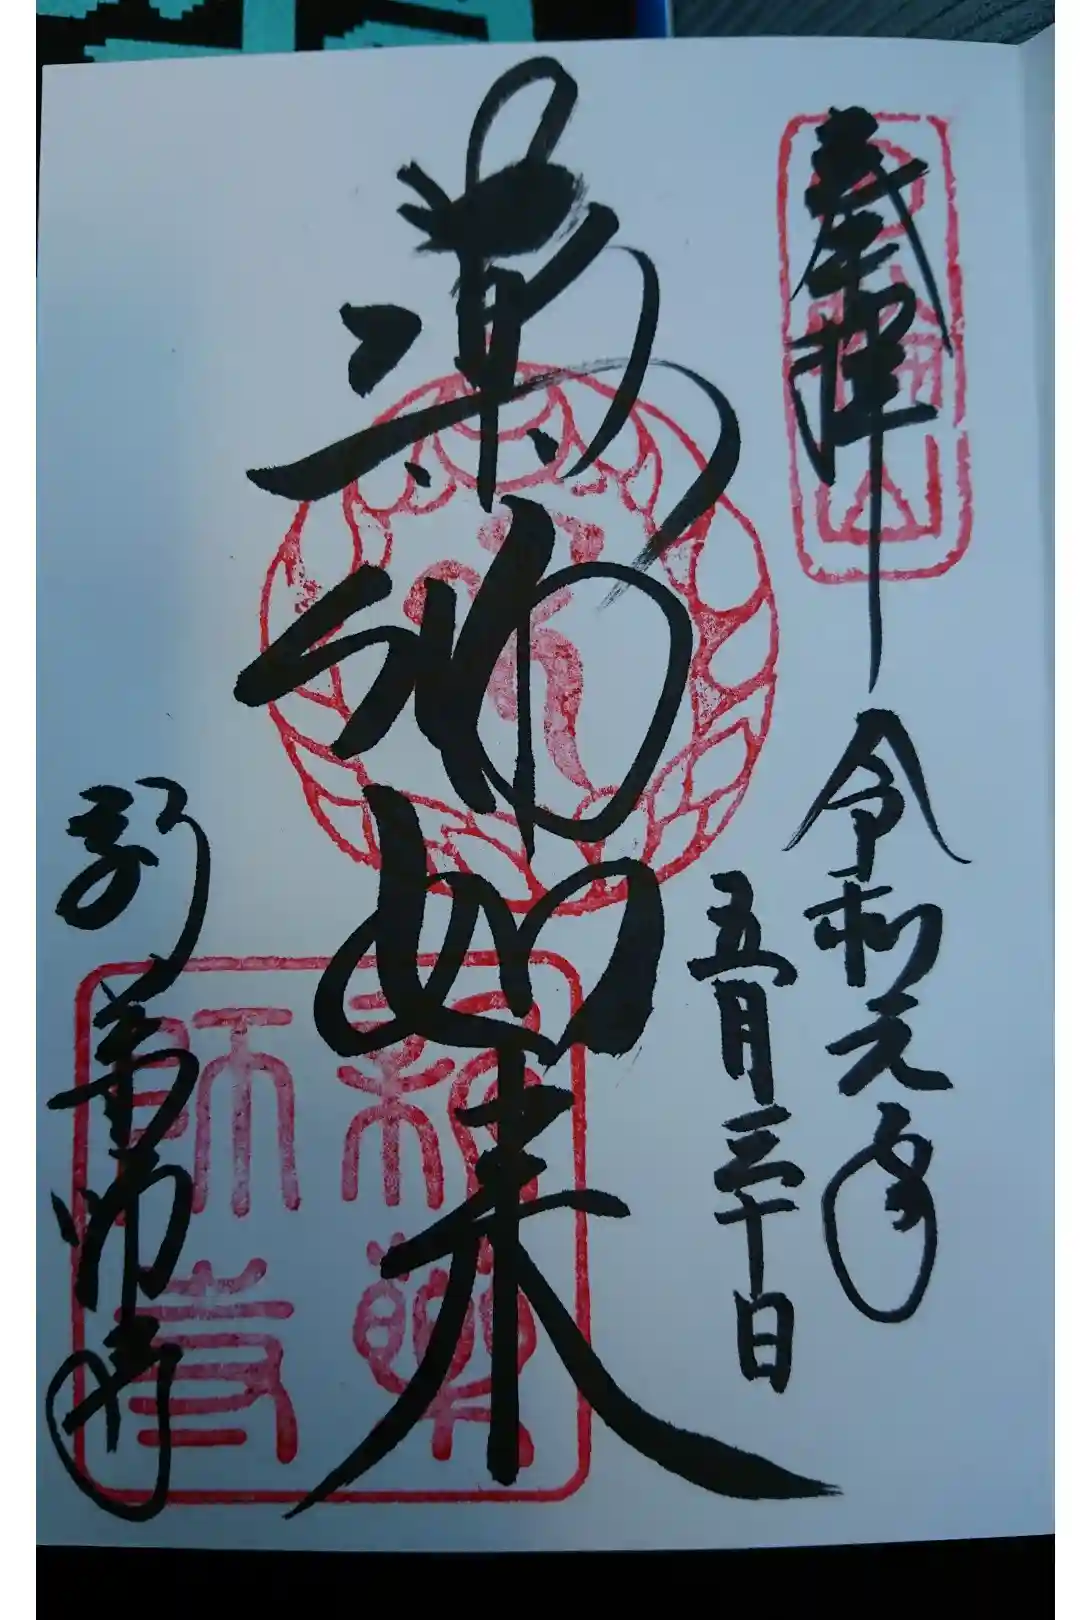 奉拝
令和元年
五月三十日
薬師如来
新薬師寺
新薬師寺